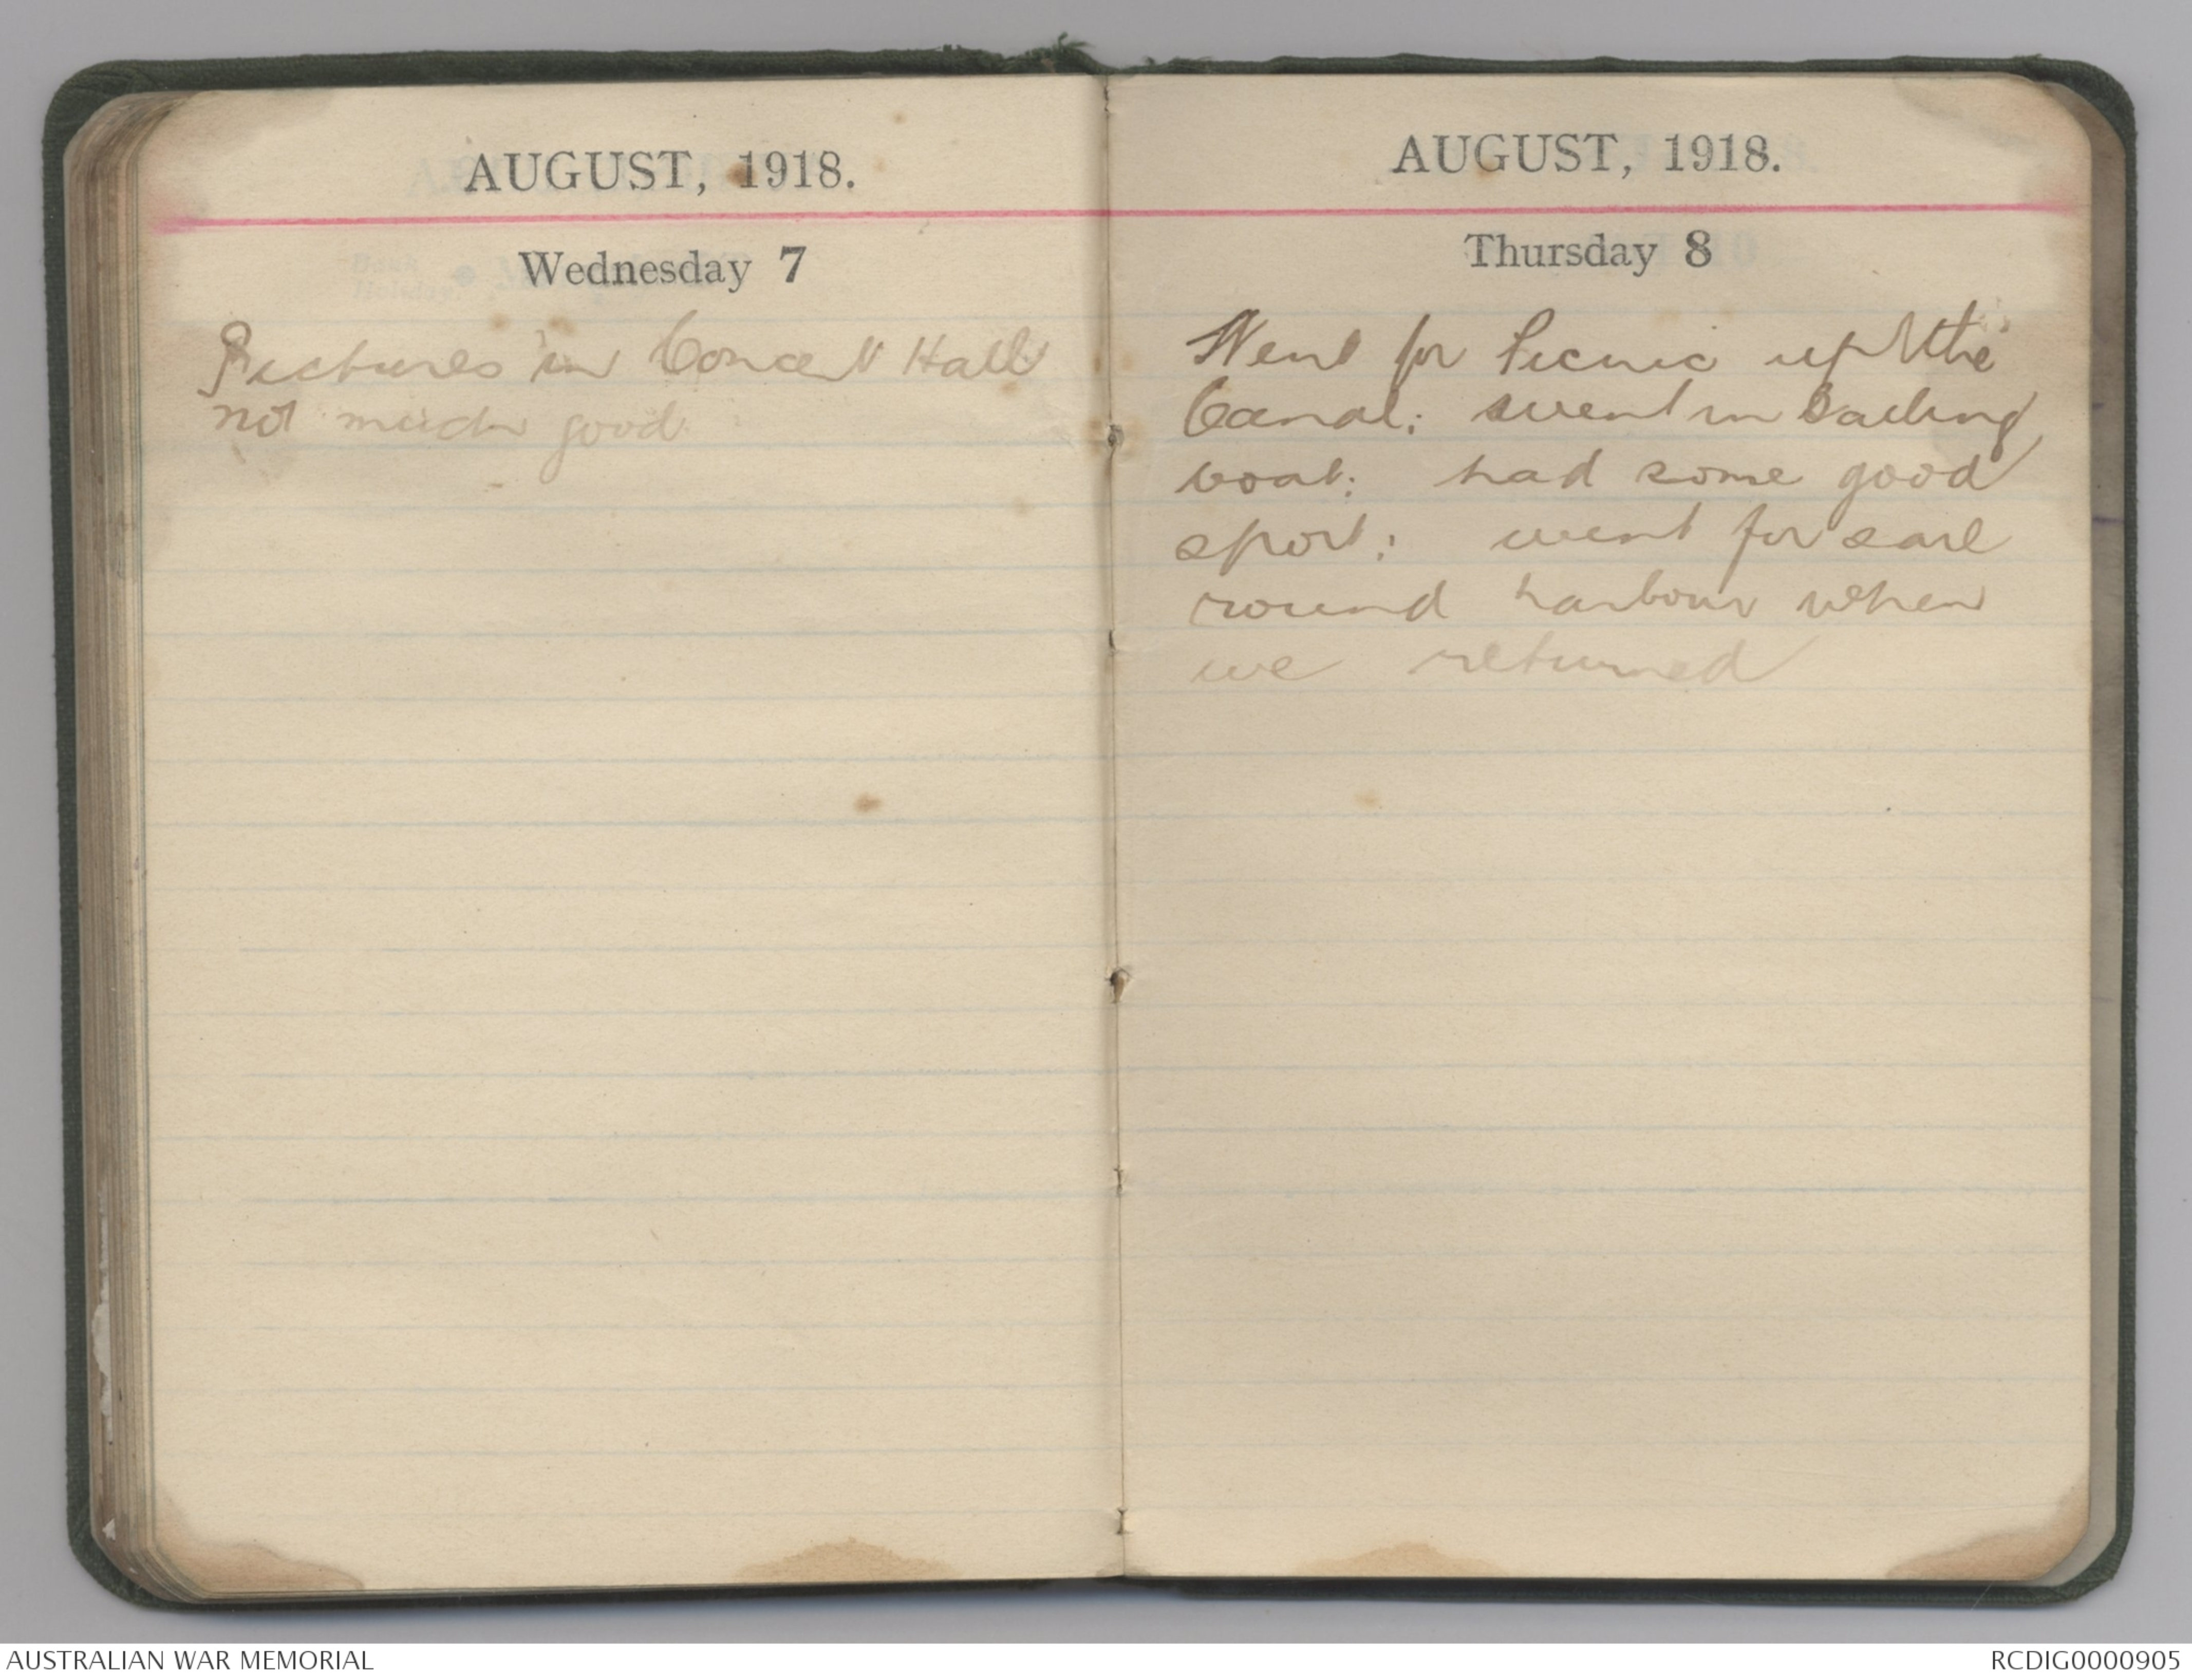 AUGUST, 1918.
Wednesday 7
Pictures in Concert Hall
not much good
AUGUST, 1918.
Thursday 8
Went for Picnic up the
Canal; went in Sailing
boat; had some good
sport; went for sail
round harbour when
we returned
AUSTRALIAN WAR MEMORIAL
RCDIG0000905